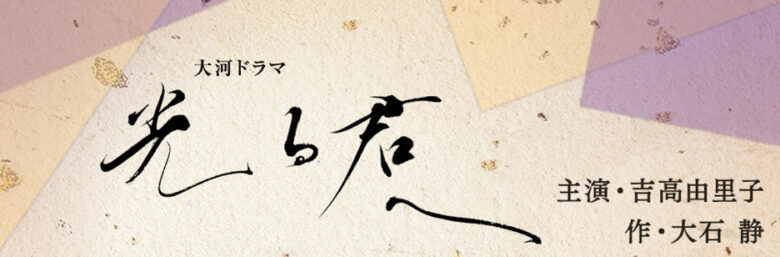 大河ドラマ
光る君へ
主演・吉高由里子
作・大石 静